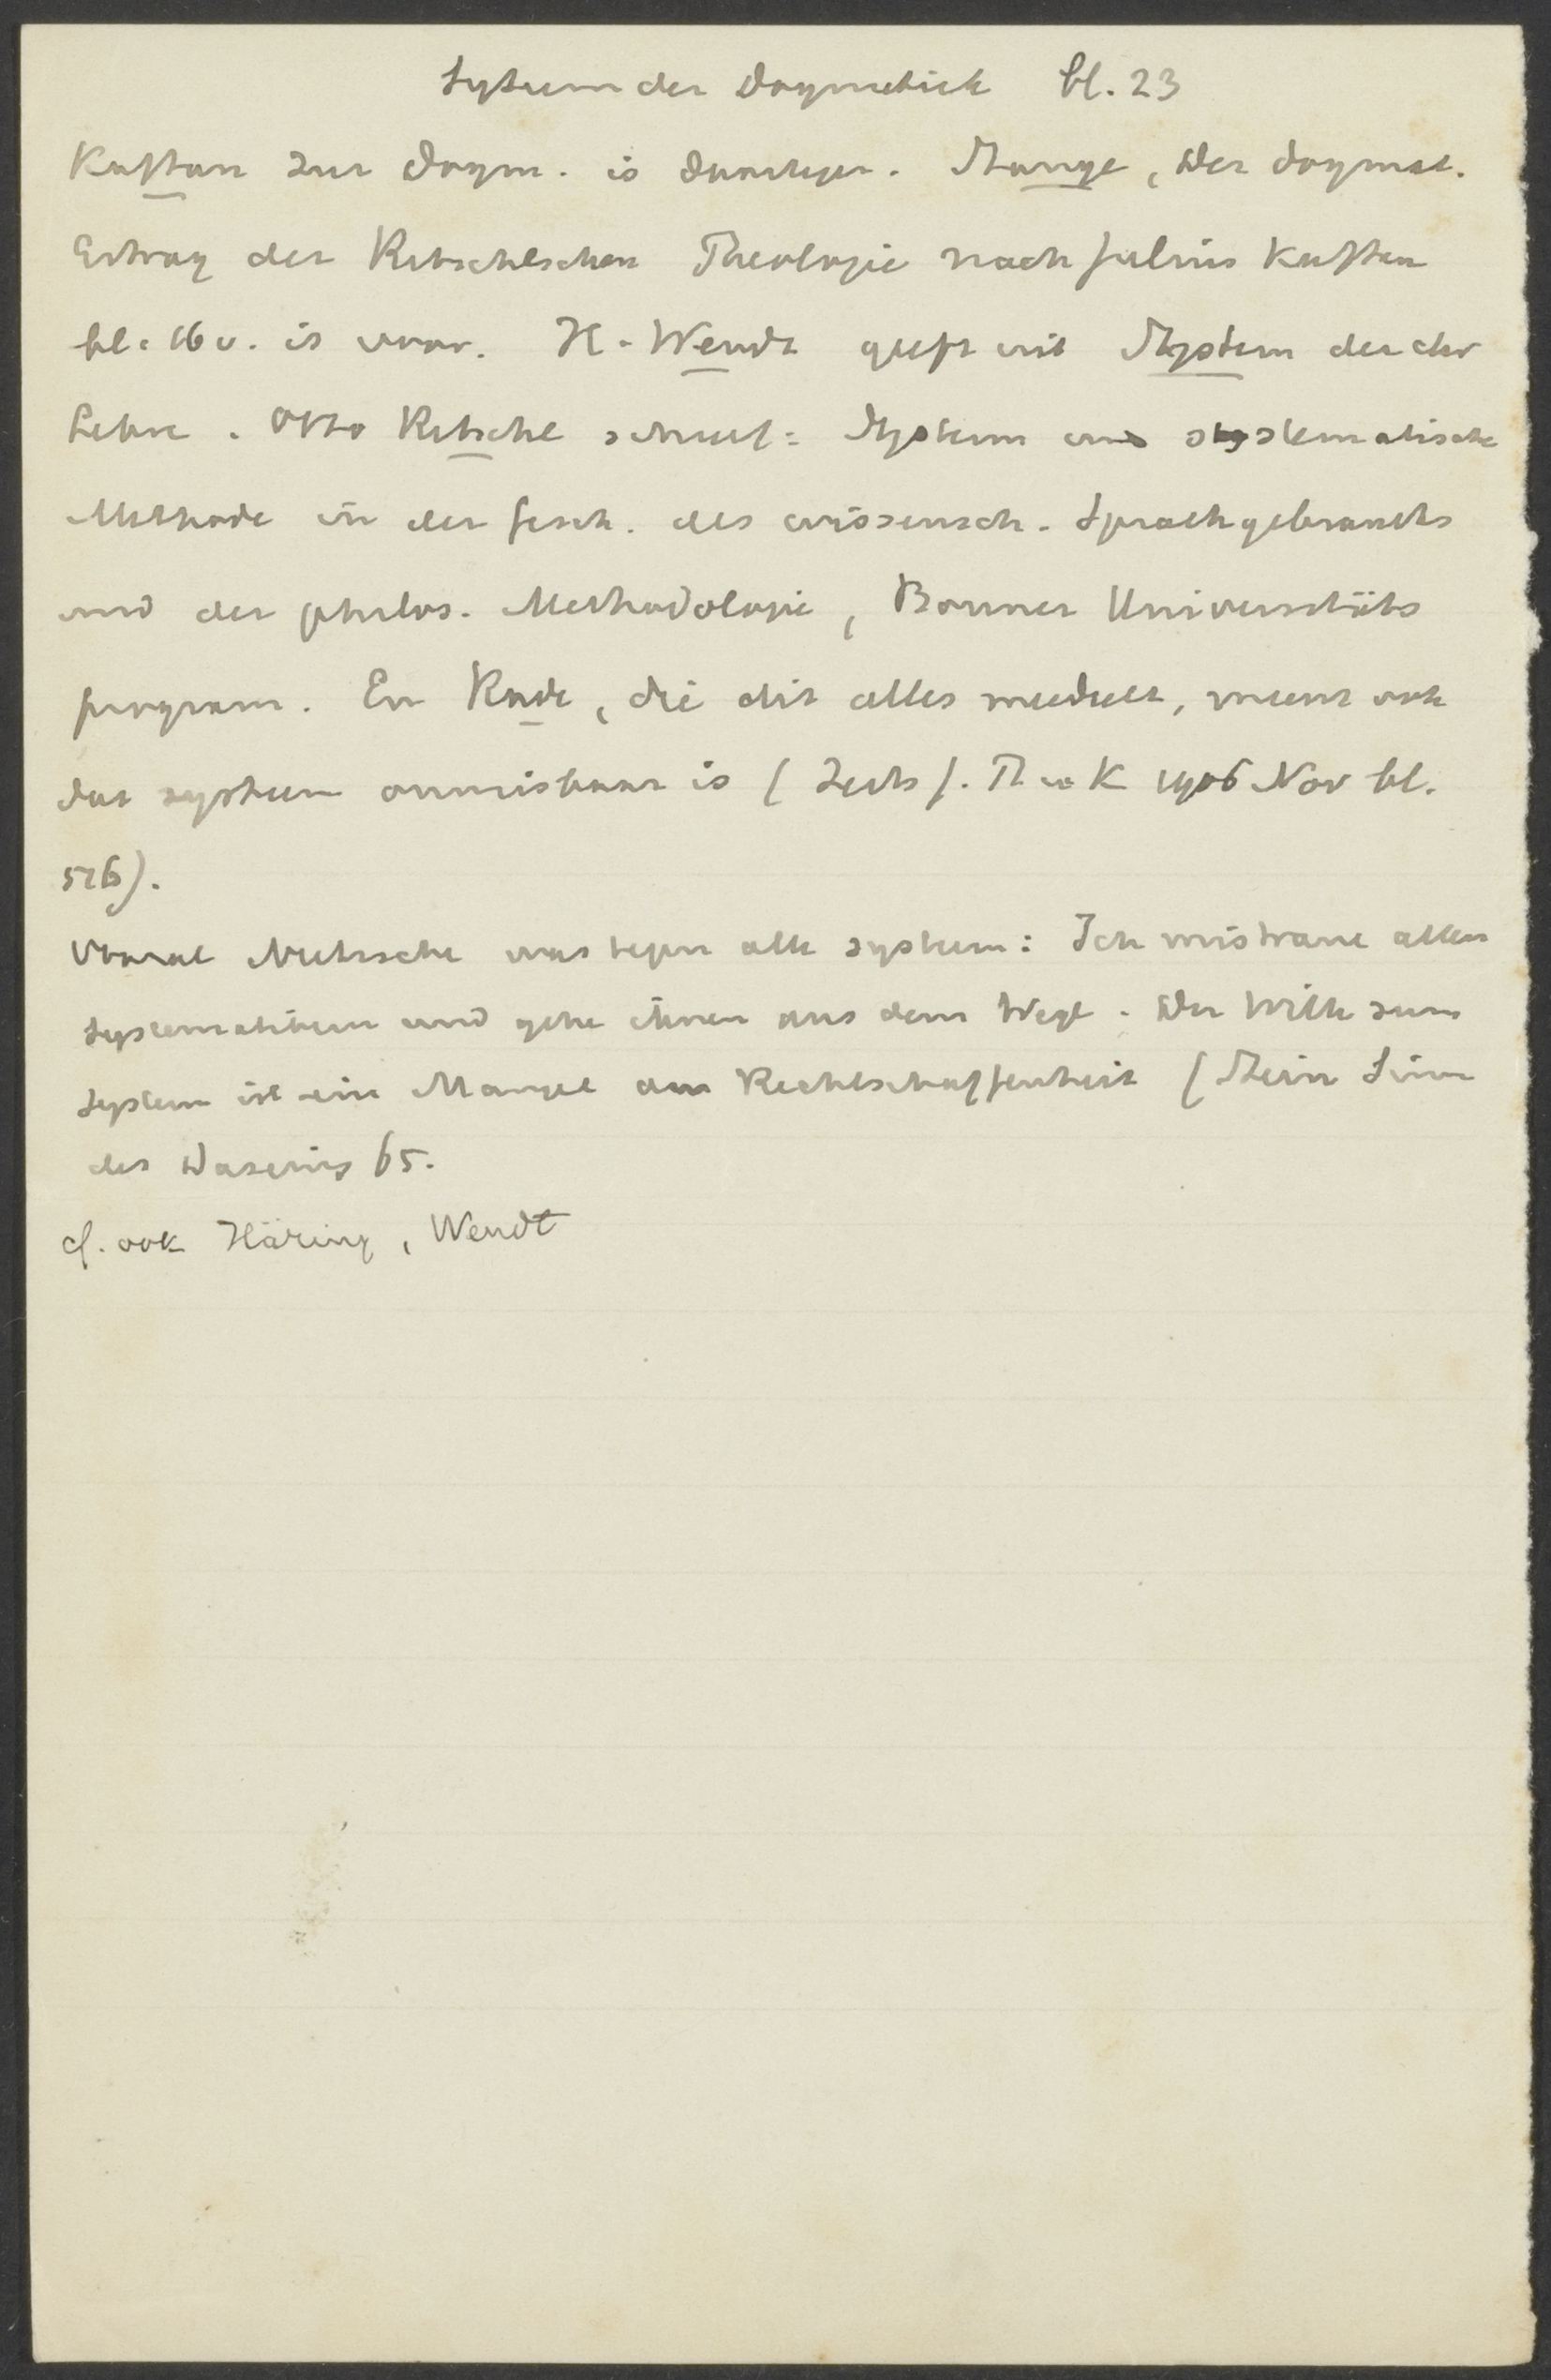 System der Dogmatiek bl. 23
Kaftan zur Dogm. is daartegen. Stange, Der dogmat.
Ertrag der Ritschlschen Theologie nach Julius Kaftan
bl. 16 v. is voor. H. Wendt geeft uit System der chr
Lehre. Otto Ritschl schreef: System und systematische
Methode in der Gesch. des wissensch. Sprachgebrauchs
und der philos. Methodologie, Bonner Universitäts
program. En Rade, die dit alles meedeelt, meent ook
dat systeem onmisbaar is (Zeits f. Th u K 1906 Nov bl.
526).
Vooral Nietzsche was tegen alle systeem: Ich mistraue allen
Systematikern und gehe ihnen aus dem Wege. Der Wille zum
System ist ein Mangel an Rechtschaffenheit (Stein Sinn
des Daseins 65.
cf. ook Häring, Wendt